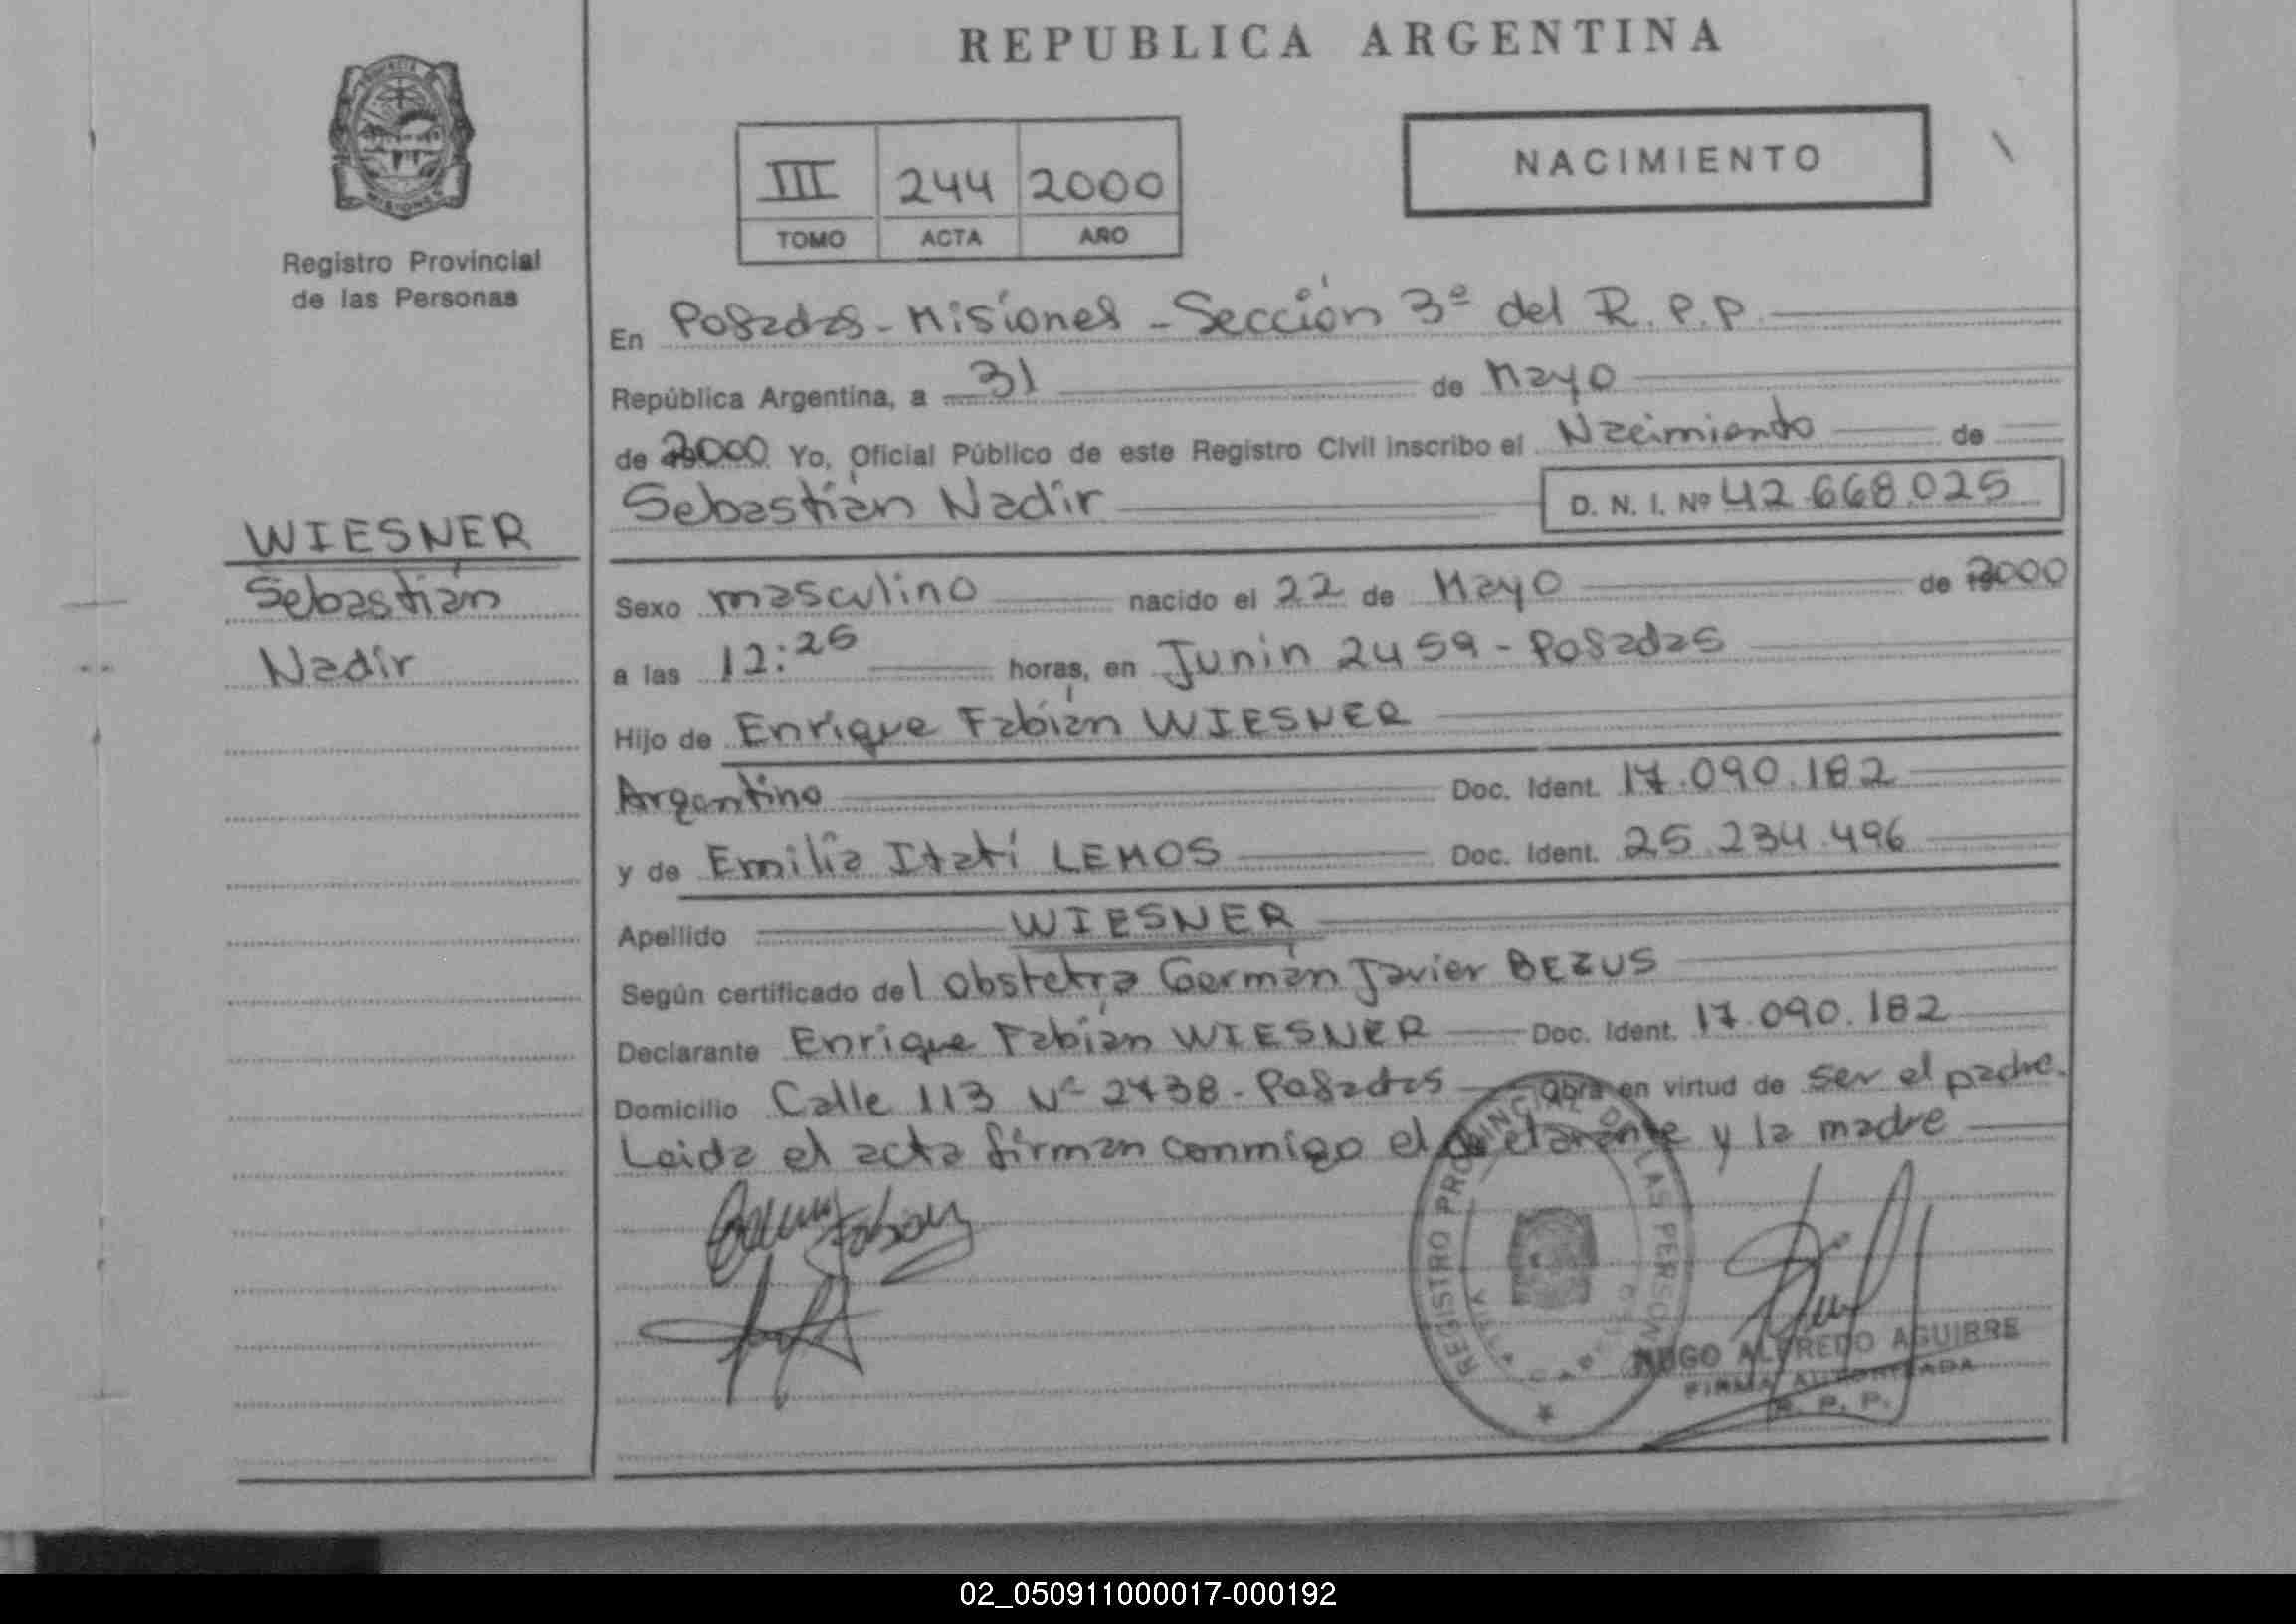 REPUBLICA ARGENTINA
PROVINCIA DE
MISIONES
Registro Provincial
de las Personas
III 244 2000
TOMO ACTA AÑO
NACIMIENTO
En Posadas - Misiones - Sección 3º del R.P.P.
República Argentina, a 31 de Mayo
de 2000 Yo, Oficial Público de este Registro Civil inscribo el Nacimiento de
Sebastián Nadir D. N. I. Nº 42.668.025
WIESNER
Sebastián
Nadir
Sexo masculino nacido el 22 de Mayo de 2000
a las 12:25 horas, en Junin 2459 - Posadas
Hijo de Enrique Fabián WIESNER
Argentino Doc. Ident. 17.090.182
y de Emilia Itatí LEMOS Doc. Ident. 25.234.496
Apellido WIESNER
Según certificado del Obstetra Germán Javier BEZUS
Declarante Enrique Fabián WIESNER Doc. Ident. 17.090.182
Domicilio Calle 113 Nº 2738 - Posadas Obra en virtud de ser el padre.
Leida el acta firman conmigo el declarante y la madre
REGISTRO PROVINCIAL DE LAS PERSONAS
HUGO ALFREDO AGUIRRE
FIRMA AUTORIZADA
R. P. P.
02_050911000017-000192